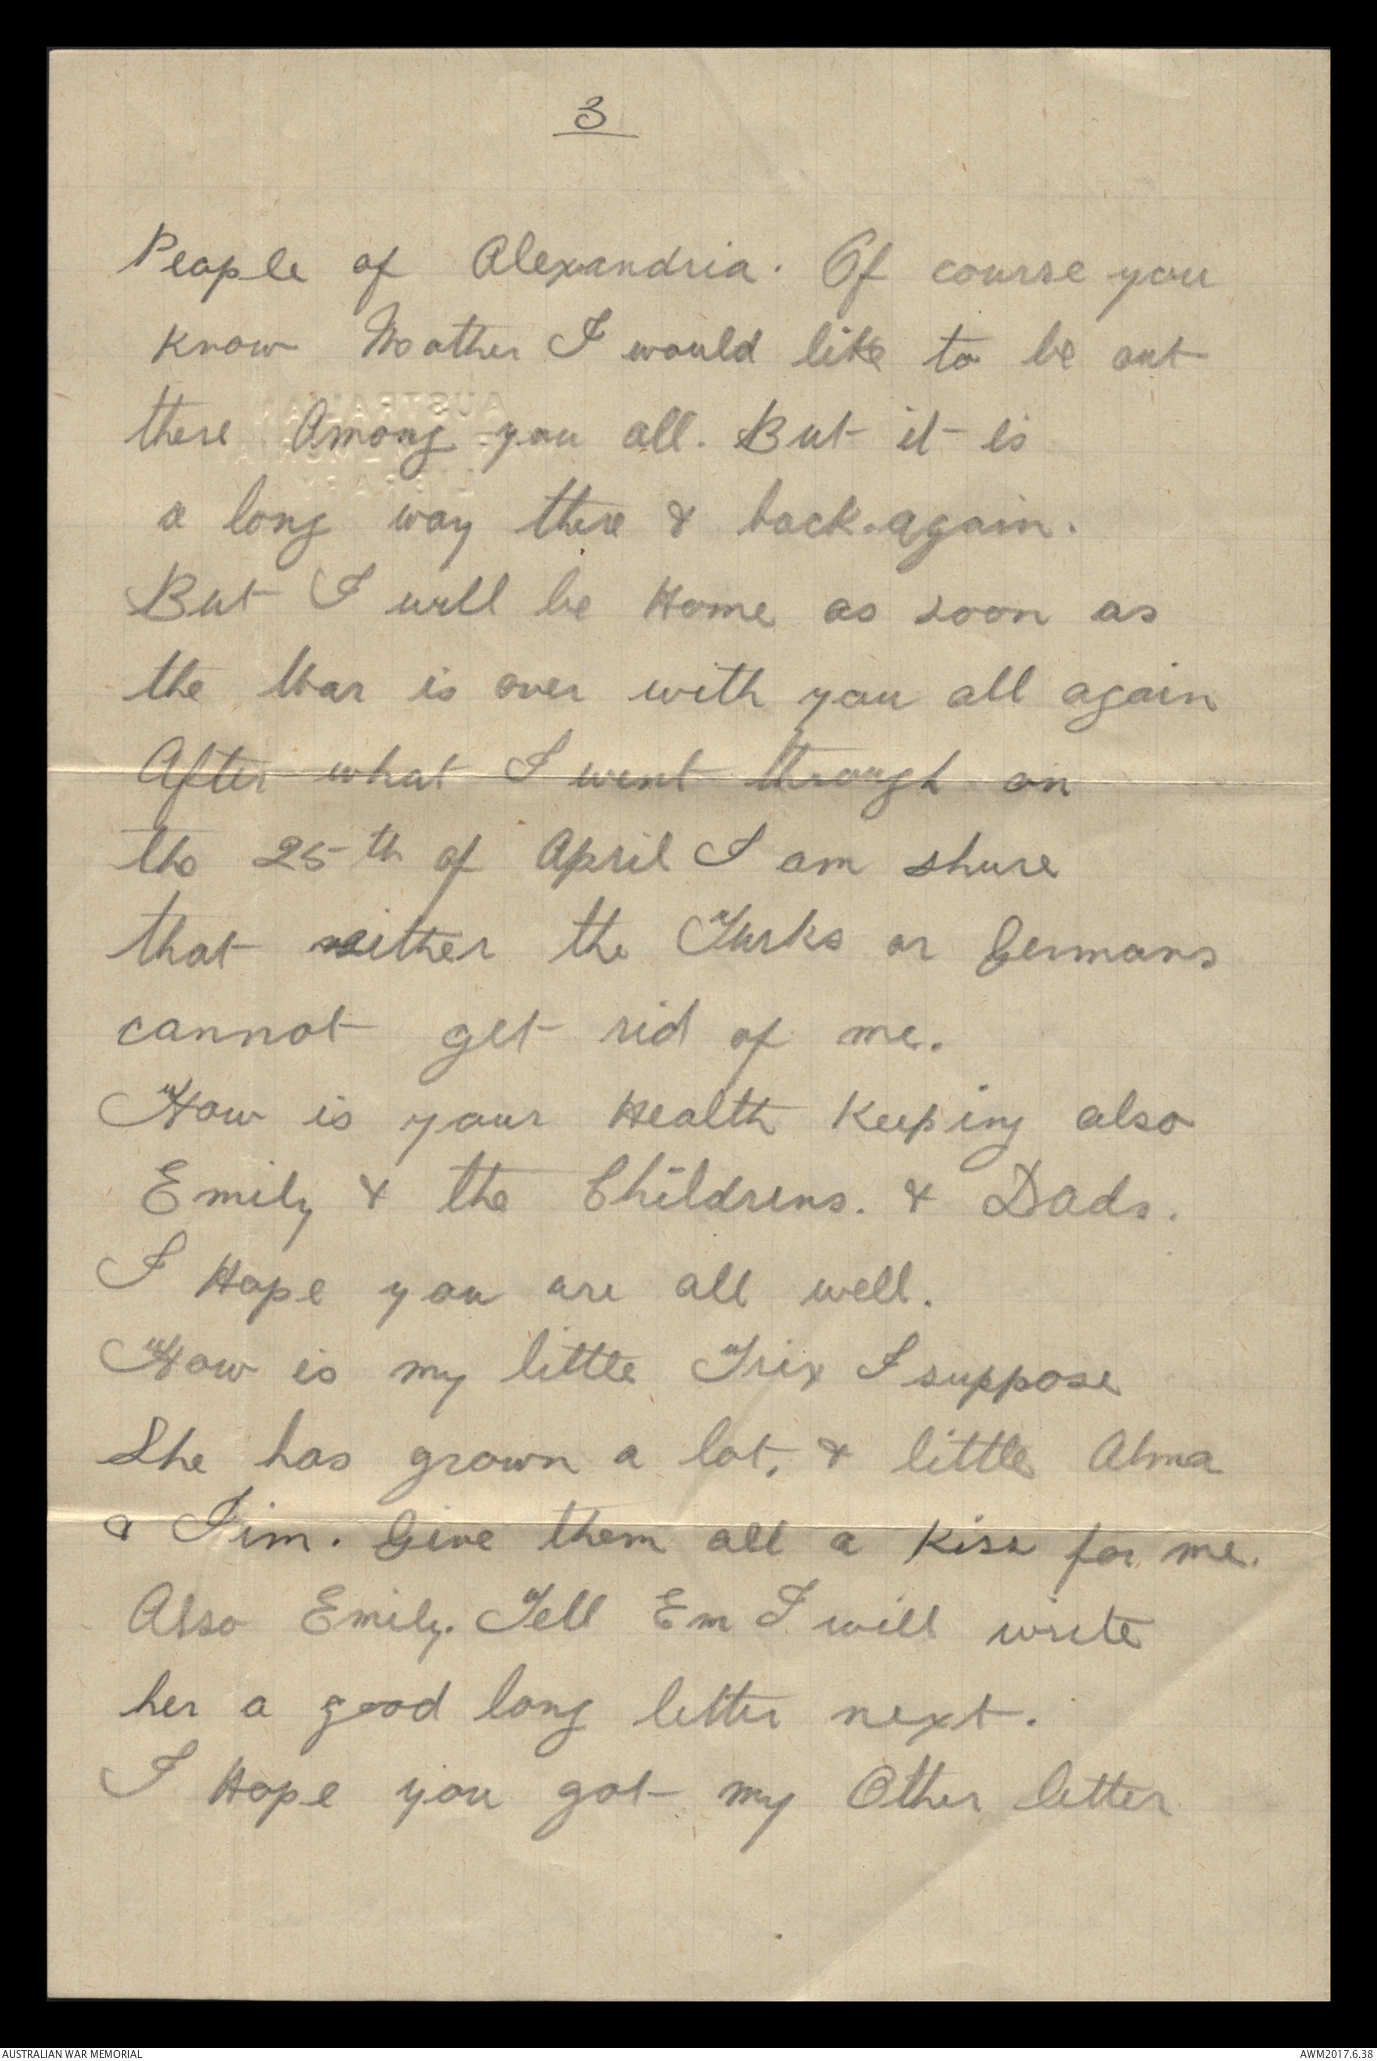 3
People of Alexandria. Of course you
know Mother I would like to be out
there Among you all. But it is
a long way there & back again.
But I will be Home as soon as
the War is over with you all again
After what I went through on
the 25th of April I am shure
that neither the Turks or Germans
cannot get rid of me.
How is your Health Keeping also
Emily & the Childrens. & Dads.
I Hope you are all well.
How is my little Trix I suppose
She has grown a lot, & little Alma
& Jim. Give them all a Kiss for me.
Also Emily. Tell Em I will write
her a good long letter next.
I Hope you got my Other letter
AUSTRALIAN WAR MEMORIAL
AWM2017.6.38